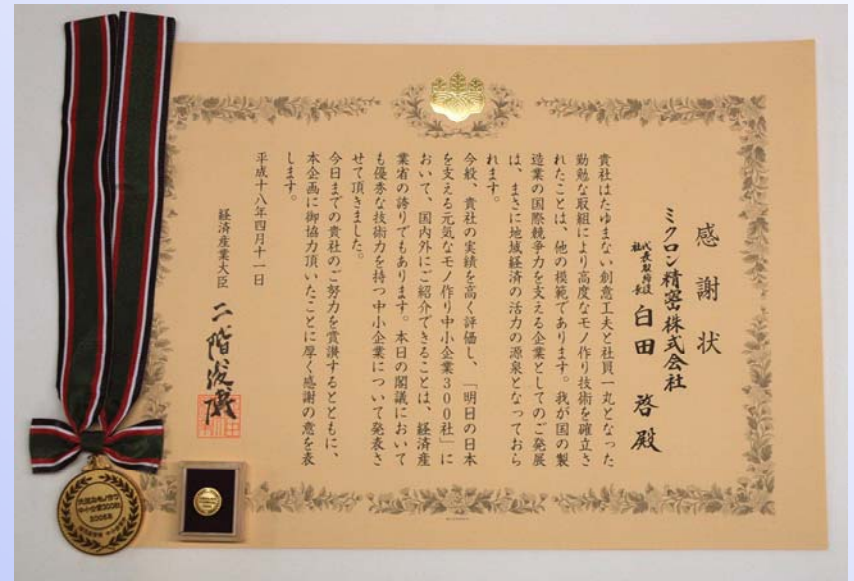 感謝状
ミクロン精密株式会社
代表取締役
社長
白田 啓 殿
貴社はたゆまない創意工夫と社員一丸となった
勤勉な取組により高度なモノ作り技術を確立さ
れたことは、他の模範であります。我が国の製
造業の国際競争力を支える企業としてのご発展
は、まさに地域経済の活力の源泉となっておら
れます。
今般、貴社の実績を高く評価し、「明日の日本
を支える元気なモノ作り中小企業300社」に
おいて、国内外にご紹介できることは、経済産
業省の誇りでもあります。本日の閣議において
も優秀な技術力を持つ中小企業について発表さ
せて頂きました。
今日までの貴社のご努力を賞讃するとともに、
本企画に御協力頂いたことに厚く感謝の意を表
します。
平成十八年四月十一日
経済産業大臣 二階俊博
元気なモノ作り
中小企業300社
2006年